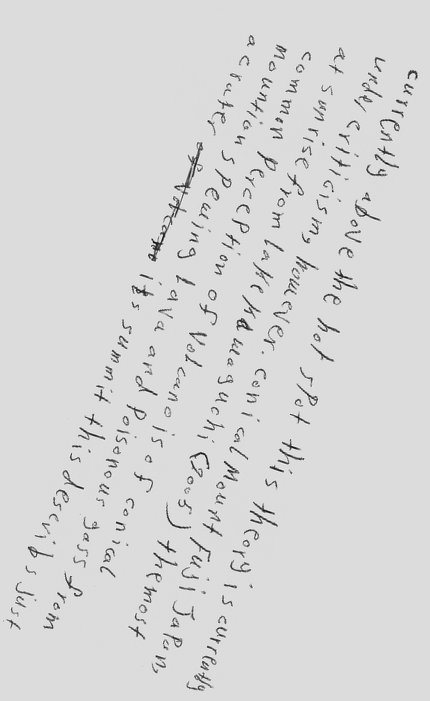 currently above the hot spot this theory is currently
under criticism, however. conical Mount Fuji Japan,
at sunrise from Lake Kawaguchi (2005) the most
common perception of Volcano is of conical
mountion spewing Lava and poisonous gass from
a crater its summit this describs just